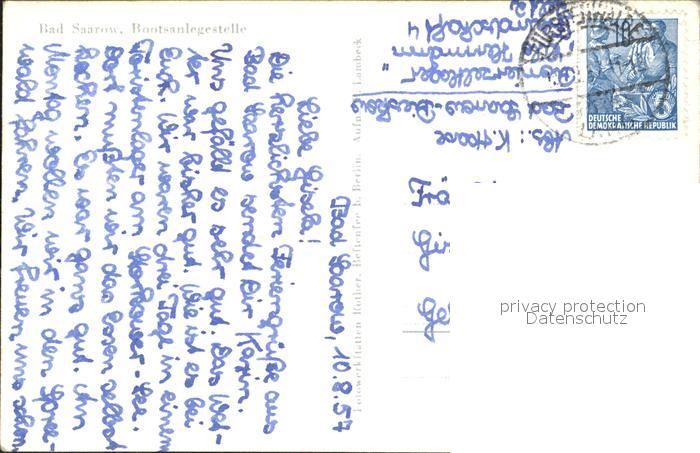 Bad Saarow, Bootsanlegestelle
Bad Saarow, 10.8.57
Liebe Gisela!
Die herzlichsten Feriengrüße aus
Bad Saarow sendet Dir Karin.
Uns gefällt es sehr gut. Das Wet-
ter war bisher gut. Wie ist es bei
Euch. Wir waren drei Tage in einem
Touristenlager am
dort mußten wir das Essen selbst
kochen. Es war ganz gut. Am
Montag wollen wir in den Spree-
wald fahren. Wir freuen uns schon.
Fotowerkstätten Rother, Bestensee b. Berlin. Aufn.: Lambeck
Abs.: K. Haase
Bad Saarow-Pieskow
Hermann
DEUTSCHE
DEMOKRATISCHE REPUBLIK
privacy protection
Datenschutz